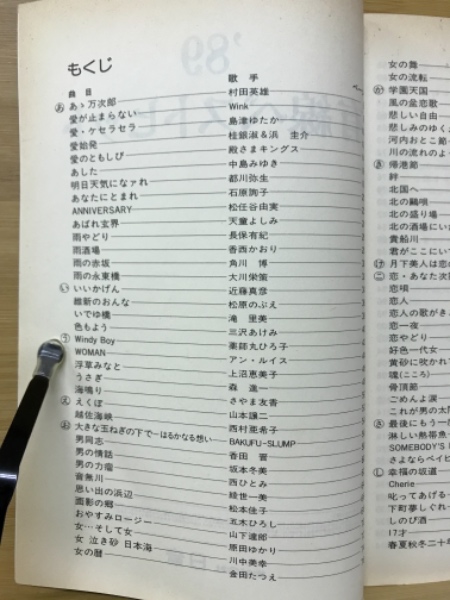 もくじ
曲目 歌手
あ あゝ万次郎 村田英雄
愛が止まらない Wink
愛・ケセラセラ 島津ゆたか
愛始発 桂銀淑&浜 圭介
愛のともしび 殿さまキングス
あした 中島みゆき
明日天気になァれ 都川弥生
あなたにとまれ 石原詢子
ANNIVERSARY 松任谷由実
あばれ玄界 天童よしみ
雨やどり 長保有紀
雨酒場 香西かおり
雨の赤坂 角川 博
雨の永東橋 大川栄策
い いいかげん 近藤真彦
維新のおんな 松原のぶえ
いでゆ橋 滝 里美
色もよう 三沢あけみ
う Windy Boy 薬師丸ひろ子
WOMAN アン・ルイス
浮草みなと 上沼恵美子
うさぎ 森 進一
海鳴り さやま友香
え えくぼ 山本譲二
越佐海峡 西村亜希子
お 大きな玉ねぎの下で―はるかなる想い BAKUFU-SLUMP
男同志 香田 晋
男の情話 坂本冬美
男の力瘤 西ひとみ
音無川 綾世一美
思い出の浜辺 松本佳子
面影の郷 五木ひろし
おやすみロージー 山下達郎
女…そして女 原田ゆかり
女 泣き砂 日本海 川中美幸
女の暦 金田たつえ
女の舞
女の流転
か 学園天国
風の盆恋歌
悲しい自由
悲しみのゆく
河内おとこ節
川の流れのよ
き 帰港節
絆
北国へ
北の鷗唄
北の盛り場
北の酒場にい
貴船川
君がここにい
け 月下美人は恋
こ 恋・あなた次
恋唄
恋人
恋人の歌がき
恋一夜
恋やどり
好色一代女
黄砂に吹かれ
魂(こころ)
骨頂節
ごめんよ涙
これが男の太
さ 最後にもう一
淋しい熱帯魚
SOMEBODY'S
さよならベイビ
し 幸福の坂道
Cherie
叱ってあげる
下町夢しぐれ
しのび酒
17才
春夏秋冬二十